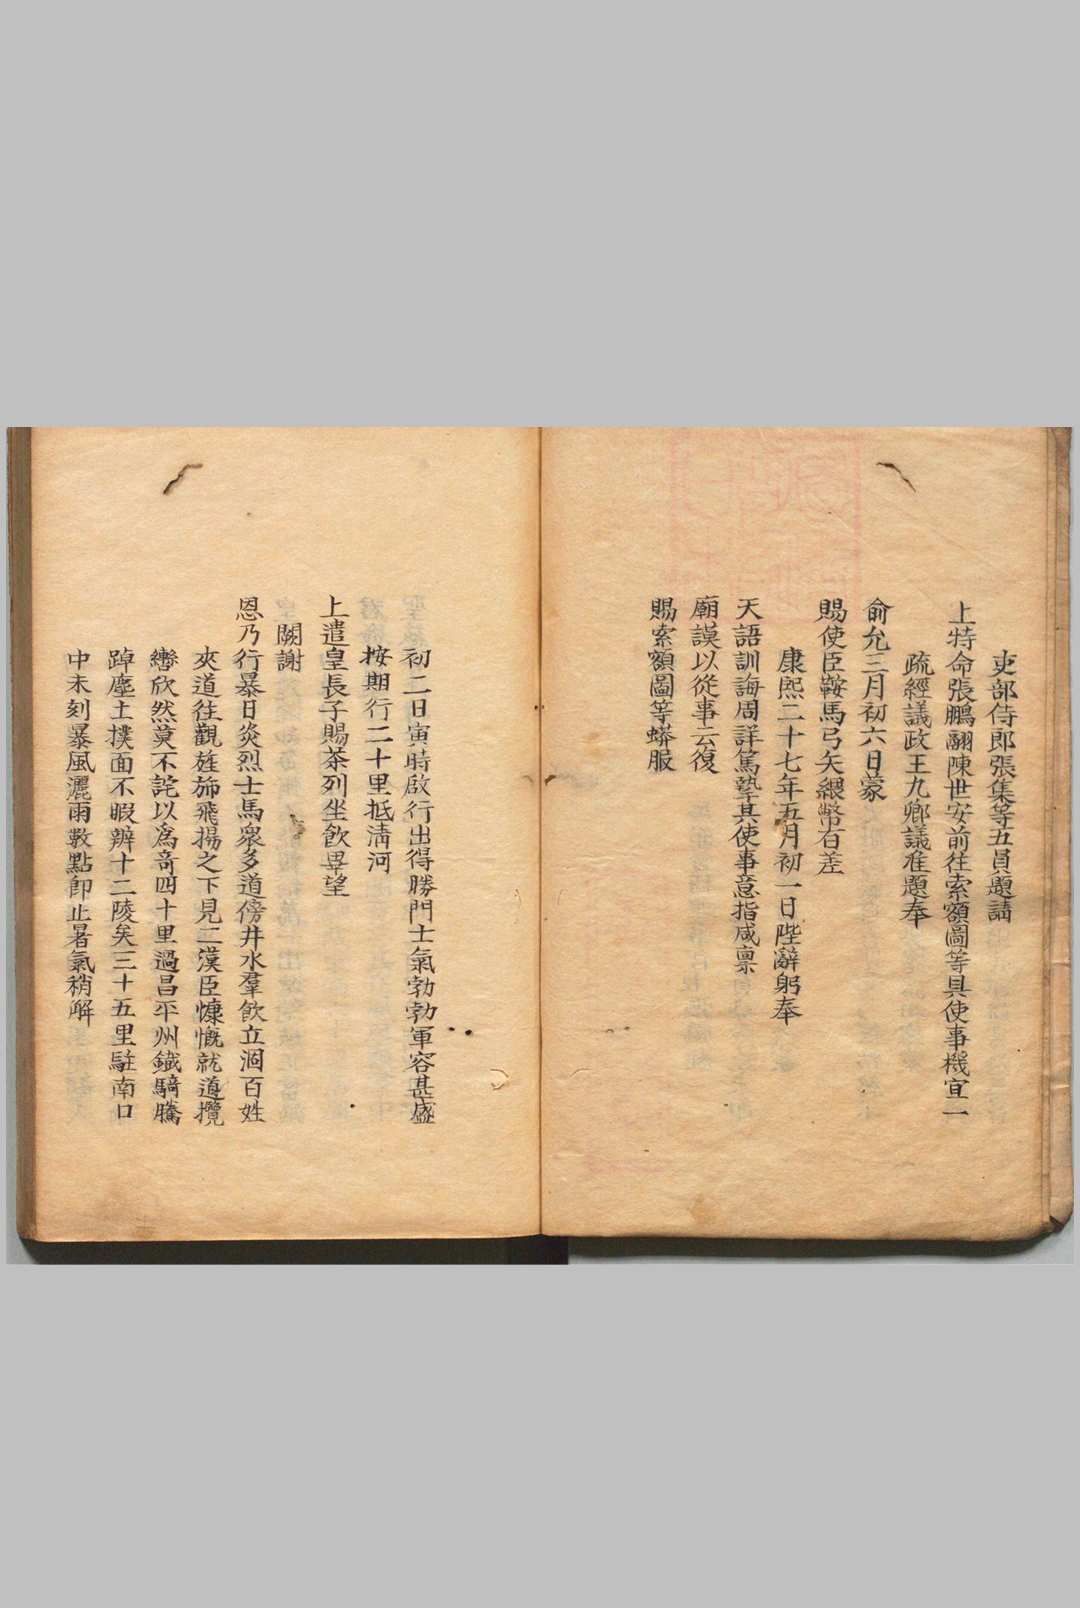 吏部侍郎張集等五員題請
上特命張鵬翮陳世安前往索額圖等具使事機宜一
疏經議政王九卿議准題奉
俞允三月初六日蒙
賜使臣鞍馬弓矢緞幣有差
康熙二十七年五月初一日陛辭躬奉
天語訓誨周詳篤摯其使事意指咸禀
廟謨以從事云復
賜索額圖等蟒服
初二日寅時啟行出得勝門士氣勃勃軍容甚盛
按期行二十里抵清河
上遣皇長子賜茶列坐飲畢望
闕謝
恩乃行暴日炎烈士馬衆多道傍井水羣飲立涸百姓
夾道往觀旌斾飛揚之下見二漢臣慷慨就道攬
轡欣然莫不詫以爲奇四十里過昌平州鐵騎騰
踔塵土撲面不暇辨十二陵矣三十五里駐南口
中未刻暴風灑雨數點卽止暑氣稍解